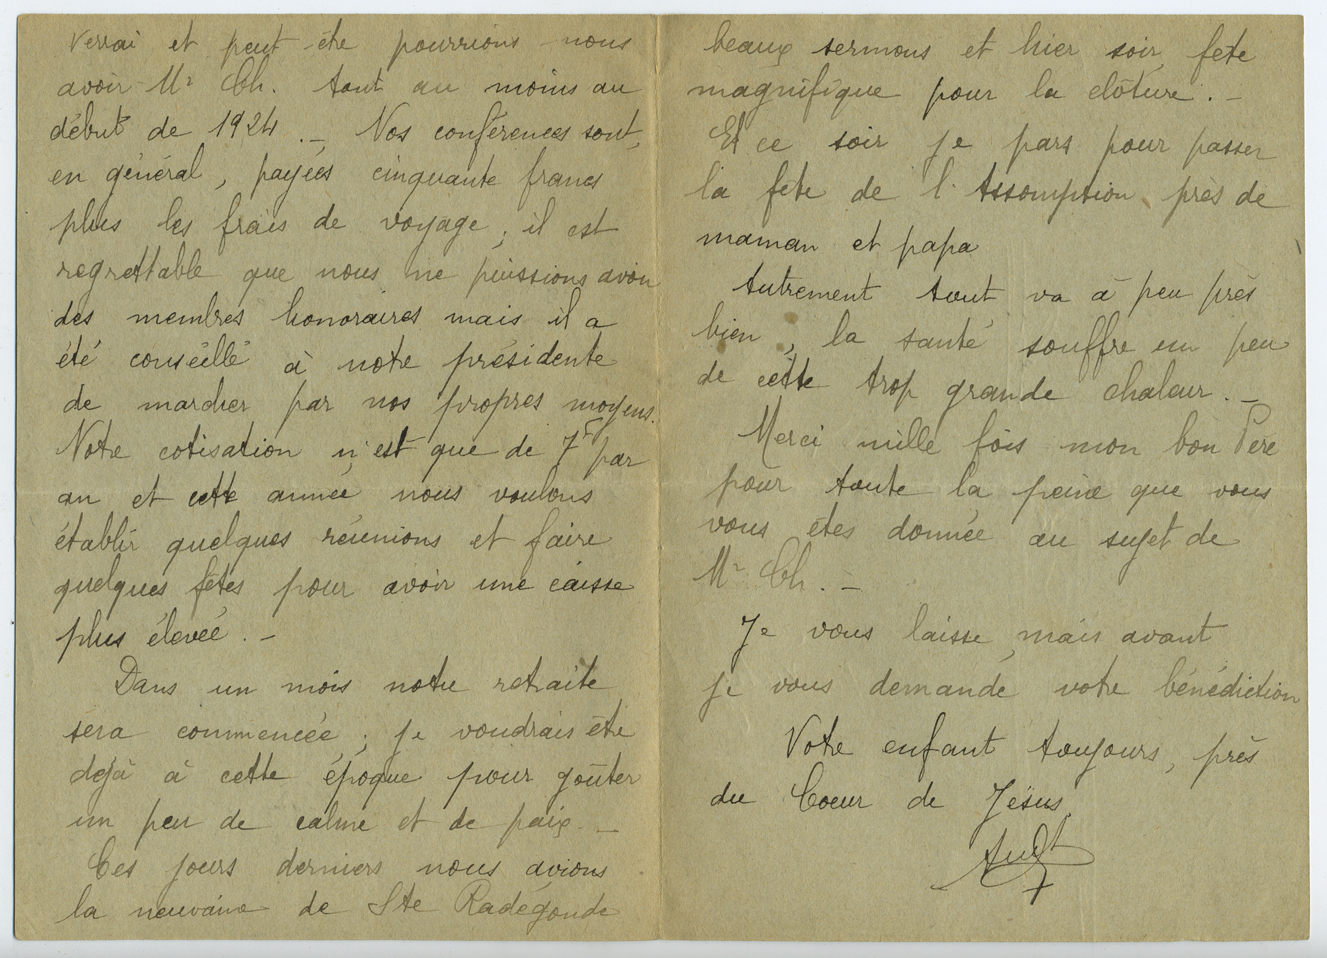 verrai et peut-être pourrions-nous
avoir Mr Ch. tout au moins au
début de 1924. _ Nos conférences sont,
en général, payées cinquante francs
plus les frais de voyage, il est
regrettable que nous ne puissions avoir
des membres honoraires mais il a
été conseillé à notre présidente
de marcher par nos propres moyens.
Notre cotisation n'est que de 7f par
an et cette année nous voulons
établir quelques réunions et faire
quelques fêtes pour avoir une caisse
plus élevée. _
Dans un mois notre retraite
sera commencée; je voudrais être
déjà à cette époque pour goûter
un peu de calme et de paix. _
Ces jours derniers nous avions
la neuvaine de Ste Radégonde
beaux sermons et hier soir, fête
magnifique pour la clôture. _
Et ce soir je pars pour passer
la fête de l'Assomption près de
maman et papa
Autrement tout va à peu près
bien, la santé souffre un peu
de cette trop grande chaleur. _
Merci mille fois mon bon Père
pour toute la peine que vous
vous êtes donnée au sujet de
Mr Ch. _
Je vous laisse, mais avant
je vous demande votre bénédiction
Votre enfant toujours, près
du Coeur de Jésus,